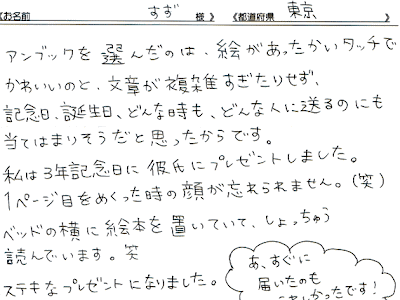 《お名前　すず　様》《都道府県　東京　》
アンブックを選んだのは、絵があったかいタッチで
かわいいのと、文章が複雑すぎたりせず、
記念日、誕生日、どんな時も、どんな人に送るのにも
当てはまりそうだと思ったからです。
私は3年記念日に彼氏にプレゼントしました。
1ページ目をめくった時の顔が忘れられません。(笑)
ベッドの横に絵本を置いていて、しょっちゅう
読んでいます。笑
ステキなプレゼントになりました。
あ、すぐに
届いたのも
かったです!